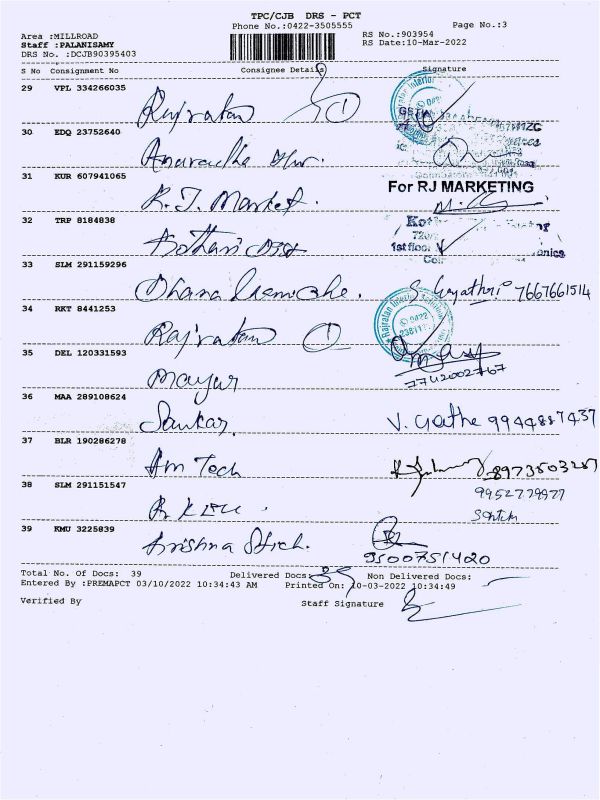 TPC/CJB DRS - PCT
Phone No.:0422-3505555
Page No.:3
Area :MILLROAD
Staff :PALANISAMY
DRS No. :DCJB90395403
RS No.:903954
RS Date:10-Mar-2022
S No Consignment No Consignee Details Signature
29 VPL 334266035
Rajratan 1
30 EDQ 23752640
31 KUR 607941065
R.J. Market.
For RJ MARKETING
32 TRP 8184838
Kothari
1st floor
33 SLM 291159296
Dhana S Gayathri 7667661514
34 RKT 8441253
Rajratan 1
35 DEL 120331593
Mayur
36 MAA 289108624
Sankar. V. Geetha 9944887437
37 BLR 190286278
Am Tech
38 SLM 291151547
39 KMU 3225839
Krishna Stich.
9500751420
Total No. Of Docs: 39 Delivered Docs: 39 Non Delivered Docs:
Entered By :PREMAPCT 03/10/2022 10:34:43 AM Printed On: 10-03-2022 10:34:49
Verified By Staff Signature